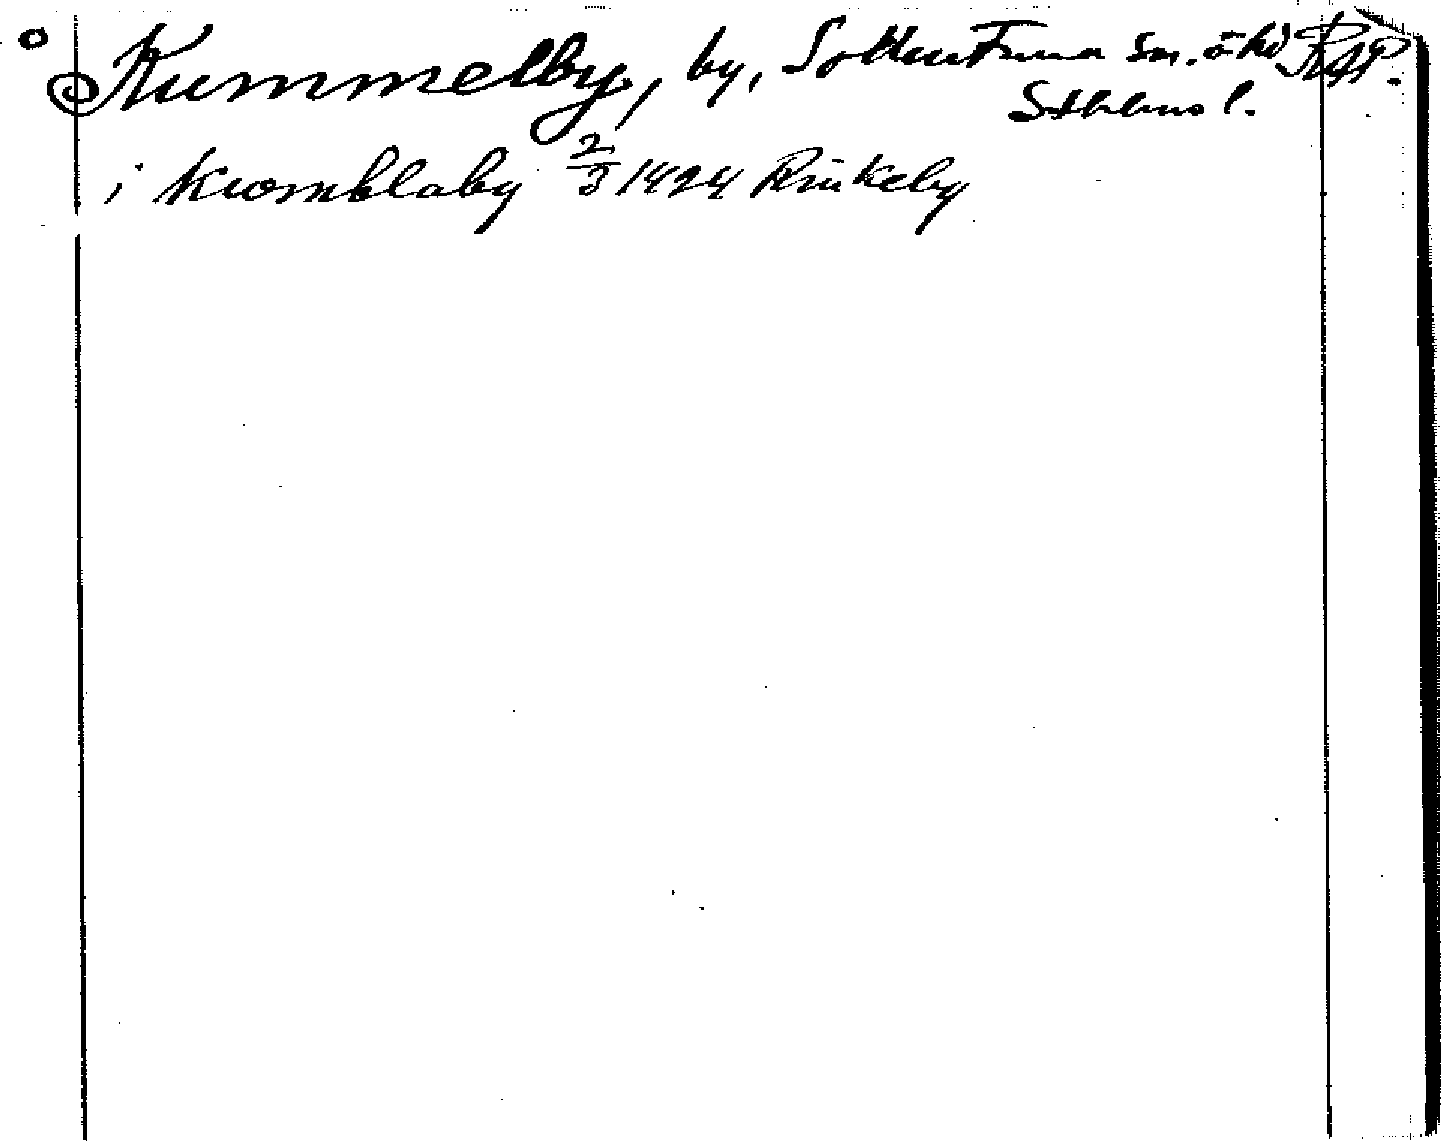 Kummelby, by, Sollentuna sn. o hd RAP.
Sthlms l.
i Kwmblaby 2/3 1424 Rinkeby